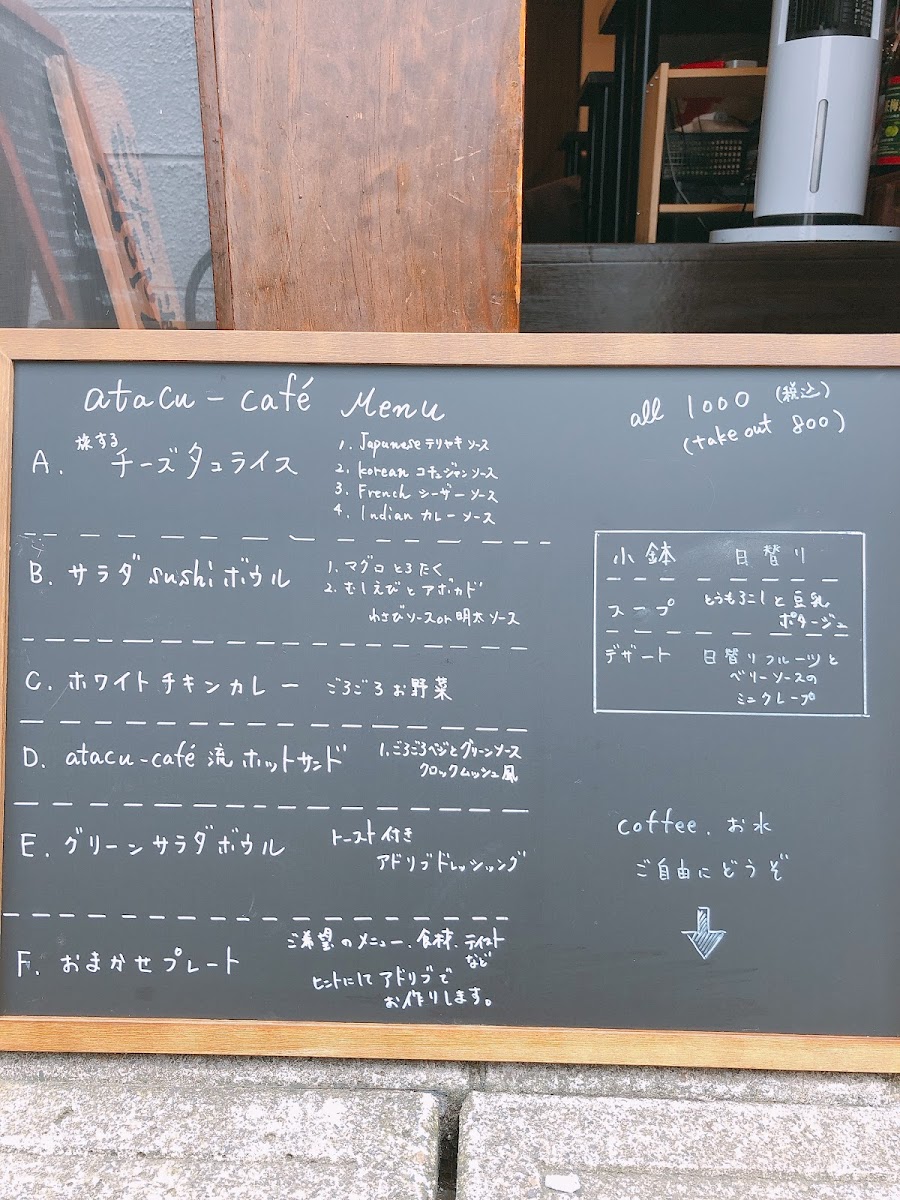 atacu-café Menu
all 1000 (税込)
(take out 800)
A. 旅する チーズタコライス
1. Japanese テリヤキソース
2. Korean コチュジャンソース
3. French シーザーソース
4. Indian カレーソース
B. サラダsushiボウル
1. マグロとろたく
2. むしえびとアボカド
わさびソースor明太ソース
C. ホワイトチキンカレー ごろごろお野菜
D. atacu-café流ホットサンド
1. ごろごろベジとグリーンソース
クロックムッシュ風
E. グリーンサラダボウル
トースト付き
アドリブドレッシング
F. おまかせプレート
ご希望のメニュー、食材、テイスト
など
ヒントにしてアドリブで
お作りします。
小鉢 日替り
スープ とうもろこしと豆乳
ポタージュ
デザート 日替りフルーツと
ベリーソースの
ミニクレープ
coffee、お水
ご自由にどうぞ